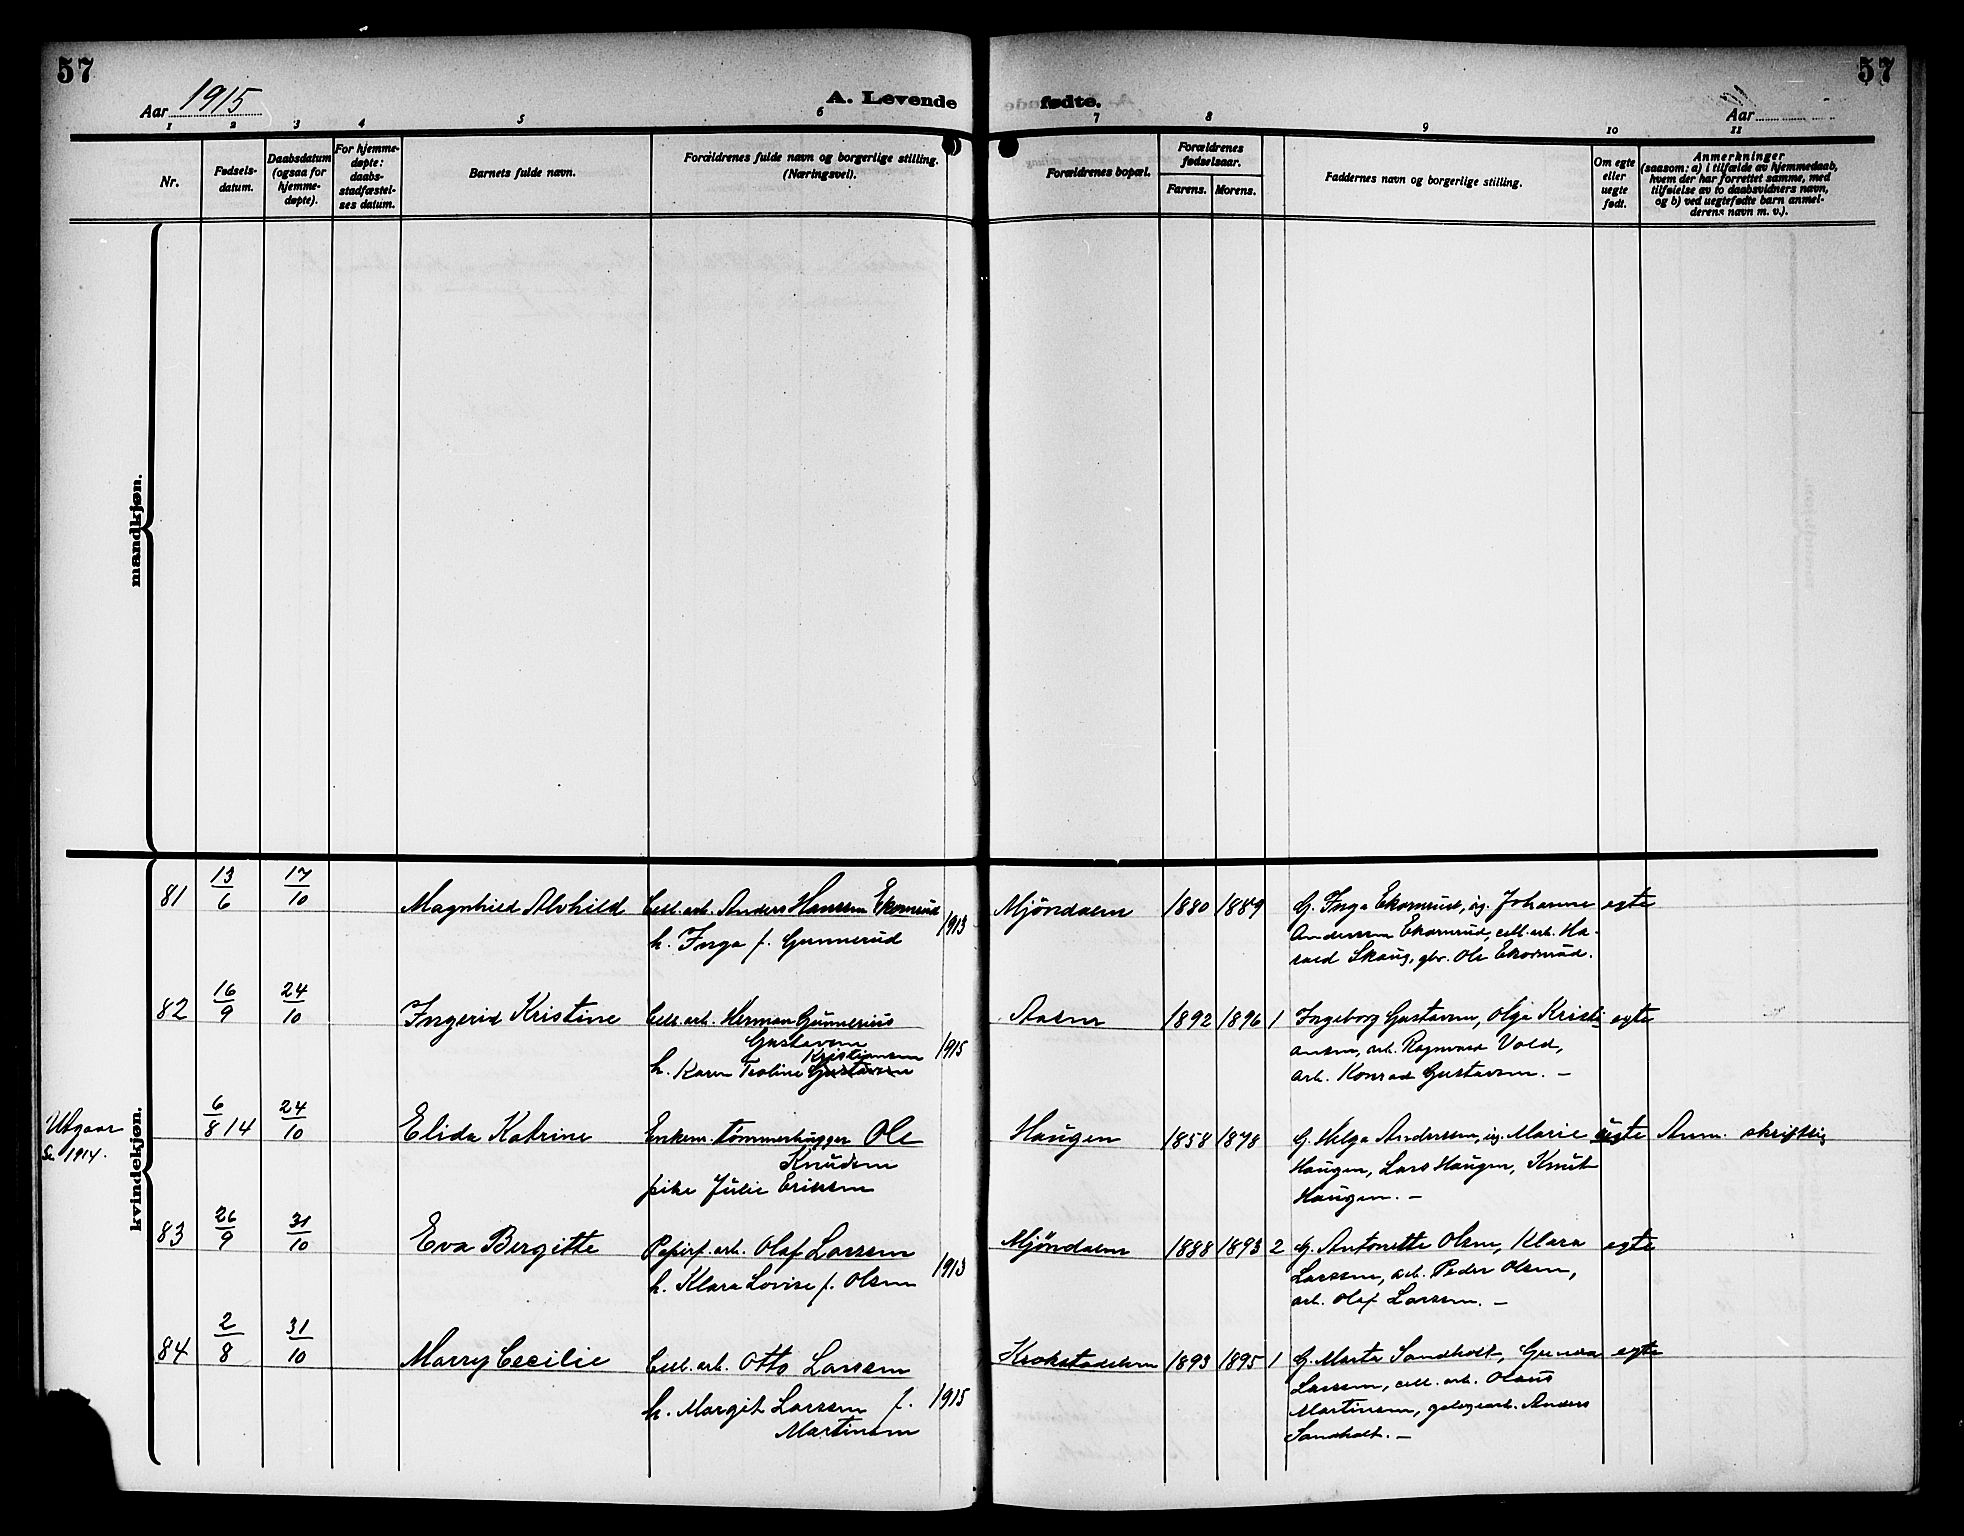 57
57
Aar 1915
A. Levende fødte.
Aar
1 2 3 4 5 6 7 8 9 10 11
Nr.
Fødsels-
datum.
Daabsdatum
(ogsaa for
hjemme-
døpte).
For hjemme-
døpte:
daabs-
stadfæstel-
ses datum.
Barnets fulde navn.
Forældrenes fulde navn og borgerlige stilling.
(Næringsvei).
Forældrenes bopæl.
Forældrenes
fødselsaar.
Farens. Morens.
Faddernes navn og borgerlige stilling.
Om egte
eller
uegte
født.
Anmerkninger
(saasom: a) i tilfælde av hjemmedaab,
hvem der har forrettet samme, med
tilføielse av to daabsvidners navn,
og b) ved uegtefødte barn anmel-
derens navn m. v.).
mandkjøn.
kvindekjøn.
81 13/6 17/10 Magnhild Alvhild Cell.arb. Anders Hansen Ekornrud
h. Inga f. Gunnerud 1913
Mjöndalen 1880 1889
G. Inga Ekornrud, ig. Johanne
Andersen Ekornrud, cell.arb. Ha-
rald Skaug, gbr. Ole Ekornrud.
egte
82 16/9 24/10 Ingerid Kristine Cell.arb. Herman Gunnerius
Gustavsen
Kristiansen
h. Karen Teoline Gustavsen 1915
Aasen 1892 1896 1
Ingeborg Gustavsen, Olga Kristi-
ansen, arb. Ragnvald Vold,
arb. Konrad Gustavsen. –
egte
Utgaar
Se 1914.
6/8 14 24/10 Elida Katrine Enkem. tømmerhugger Ole
Knudsen
pike Julie Eriksen
Haugen 1858 1878
G. Helga Andersen, ig. Marie
Haugen, Lars Haugen, Knut
Haugen. –
uegte Anm. skriftlig
83 26/9 31/10 Eva Bergitte Papirf.arb. Olaf Larsen
h. Klara Lovise f. Olsen 1913
Mjöndalen 1888 1893 2
G. Antonette Olsen, Klara
Larsen, arb. Peder Olsen,
arb. Olaf Larsen. –
egte
84 2/8 31/10 Marry Cecilie Cell.arb. Otto Larsen
h. Margit Larsen f.
Martinsen 1915
Krokstadelven 1893 1895 1
G. Marta Sandholt, Gunda
Larsen, cell.arb. Olaus
Martinsen, Anders
Sandholt. –
egte